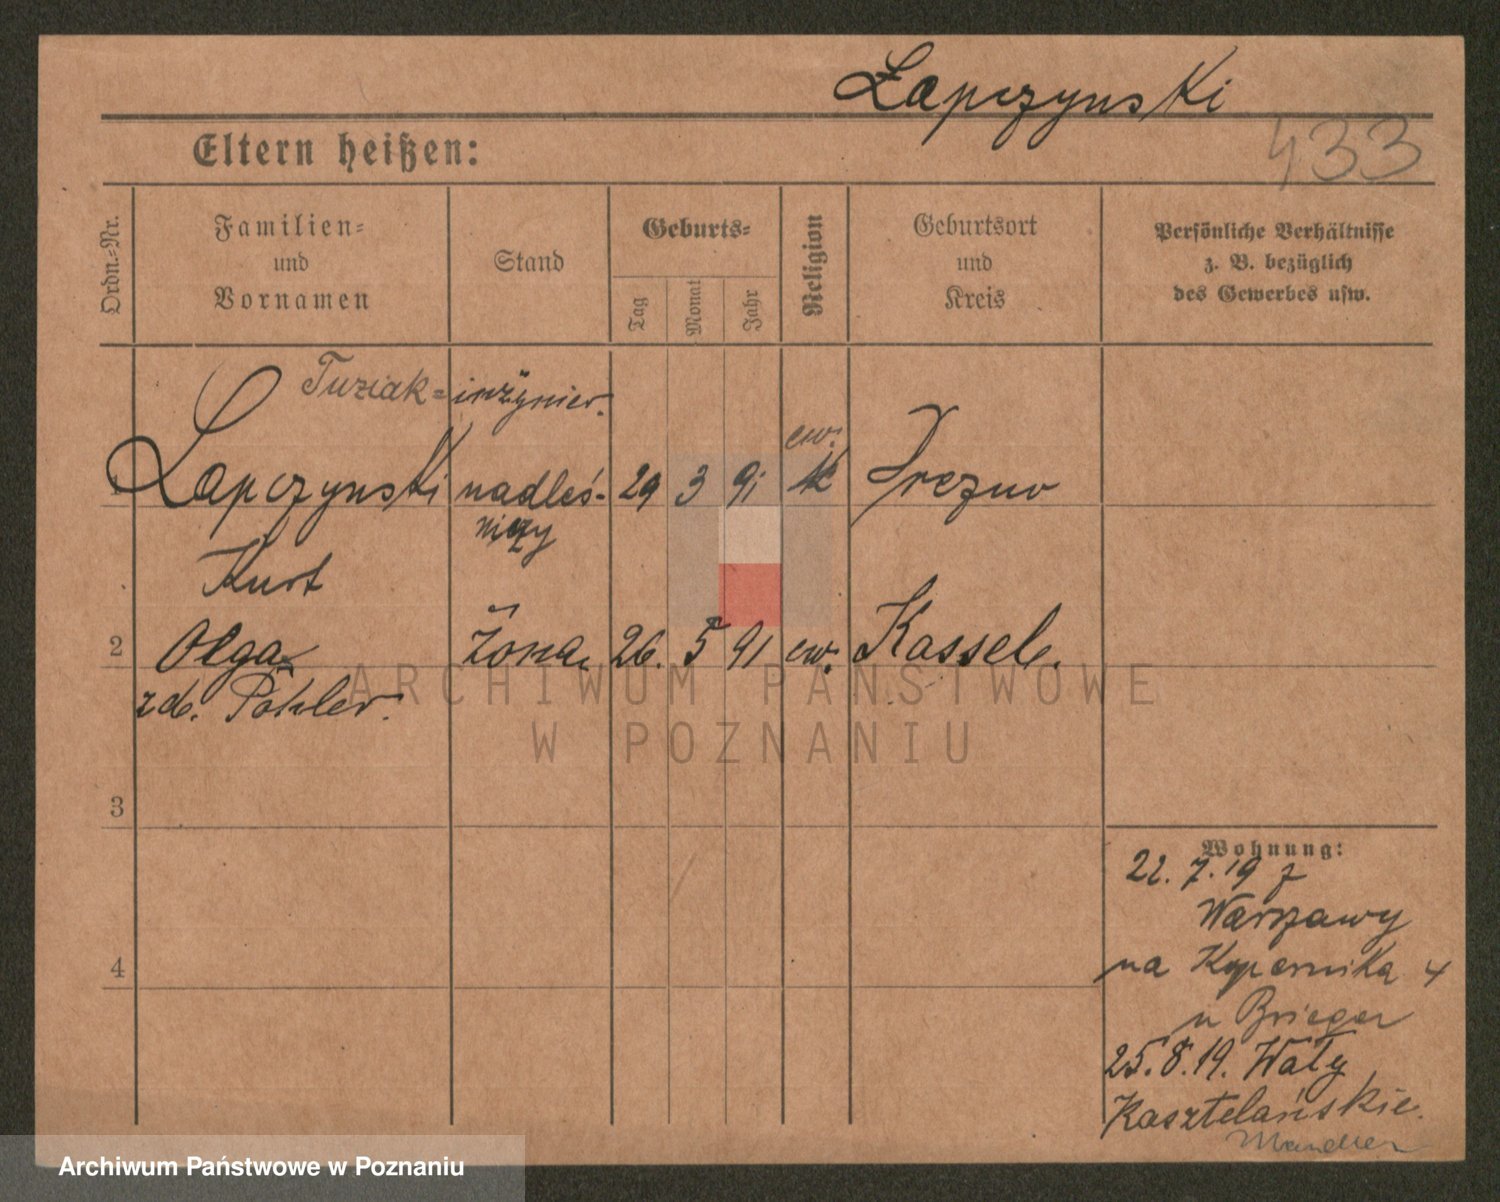 Łapczynski
433
Eltern heißen:
Ordn.-Nr.
Familien-
und
Vornamen
Stand
Geburts-
Tag
Monat
Jahr
Religion
Geburtsort
und
Kreis
Persönliche Verhältnisse
z. B. bezüglich
des Gewerbes usw.
Tuziak = inżynier.
ew.
1 Łapczynski nadleś- 29 3 91 k
niczy
Kurt
2 Olga żona 26. 5 91 ew. Kassel.
zd. Pohler.
3
4
Wohnung:
22. 7. 19 z
Warszawy
na Kopernika 4
u Brieger
25. 8. 19. Wały
Kasztelańskie.
ARCHIWUM PAŃSTWOWE
W POZNANIU
Archiwum Państwowe w Poznaniu